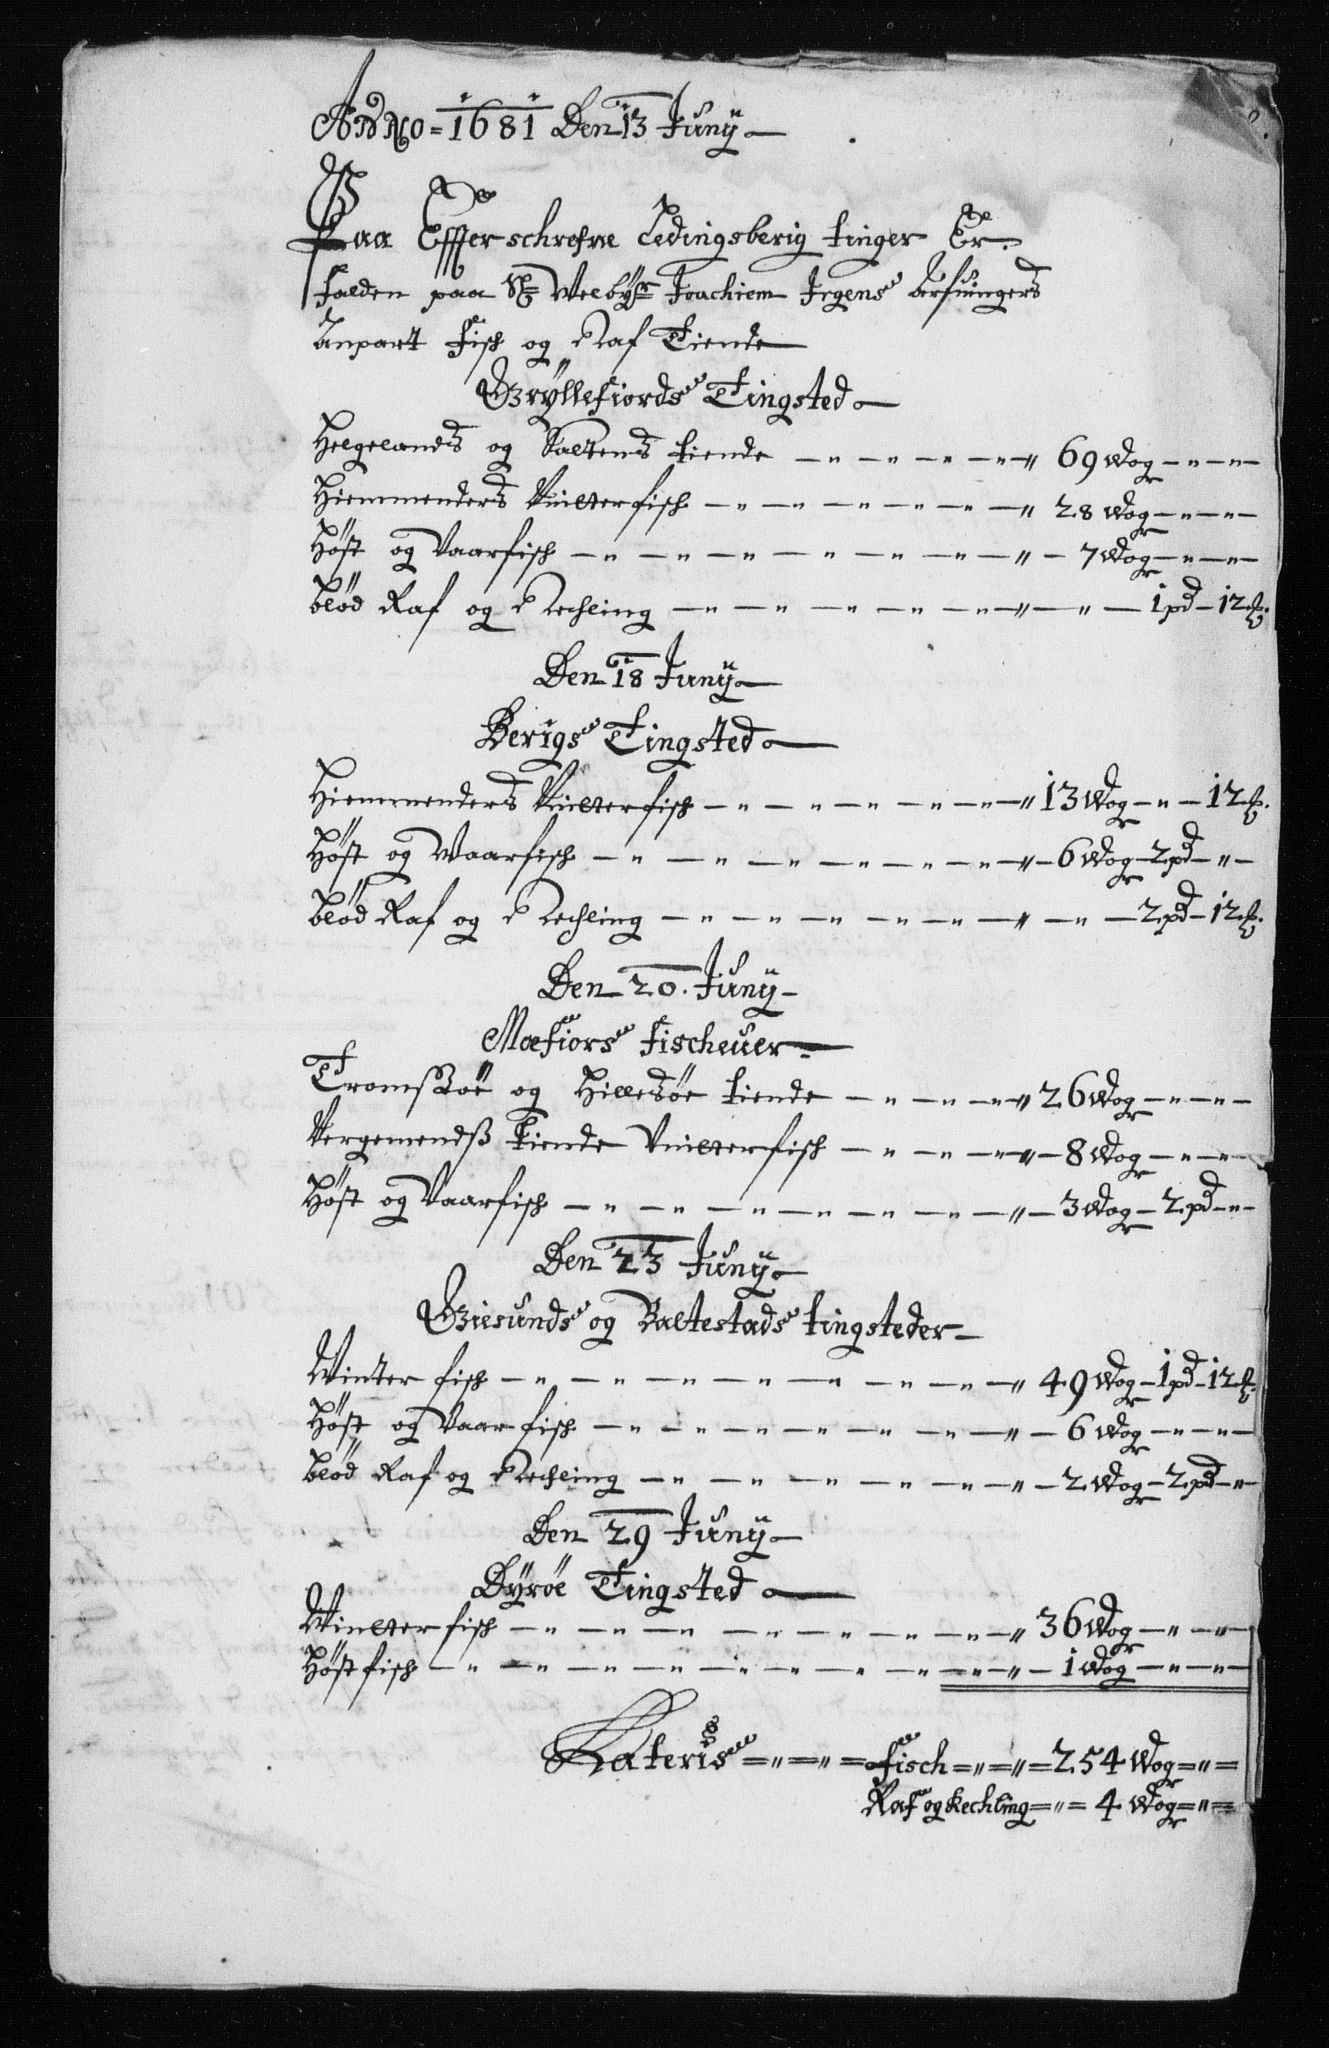 Anno = 1681 Den 13 Juny
Paa Effterschrefne Ledingsberig tinger Er
falden paa Sl: Velbyr: Joachiem Irgens Arfuingers
Anpart fisch og Raf Tiende
Gryllefiords Tingsted
Helgelands og Saltens tiende 69 Wog
Hiemmenders Vintterfisch 28 Wog
Høst og Vaarfisch 7 Wog
blød Raf og Rechling 1 pd 12 ℔.
Den 18 Juny
Berigs Tingsted
Hiemmenders Vintterfisch 13 Wog 12 ℔.
Høst og Waarfisch 6 Wog 2 pd
blød Raf og Rechling 2 pd 12 ℔.
Den 20. Juny
Mæfiors fischeuer
Tromssøe og Hillesøe tiende 26 Wog
Vergemendß Tiende Vintterfisch 8 Wog
Høst og Vaarfisch 3 Wog 2 pd
Den 23 Juny
Giesunds og Baltestads tingsteder
Vinter fisch 49 Wog 1 pd 12 ℔.
Høst og Vaar fisch 6 Wog
blød Raf og Rechling 2 Wog 2 pd
Den 29 Juny
Dyrøe Tingsted
Vintterfisch 36 Wog
Høstfisch 1 Wog
Lateris fisch 254 Wog
Raf og Rechling 4 Wog